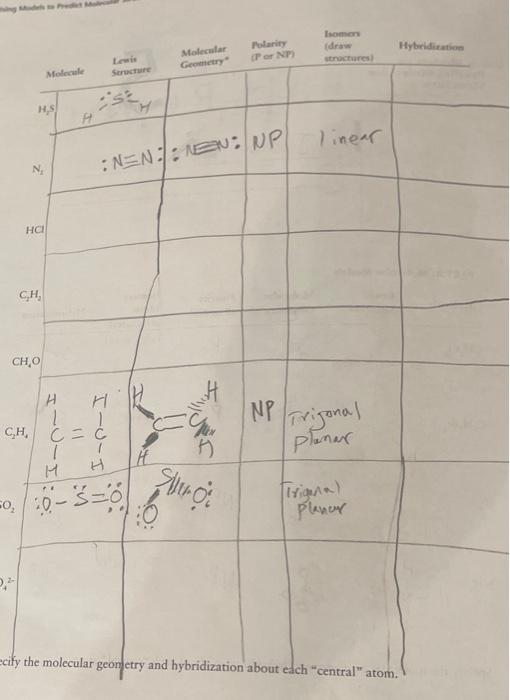 Using Models to Predict Molecular
Molecule
Lewis Structure
Molecular Geometry*
Polarity (P or NP)
Isomers (draw structures)
Hybridization
H₂S
H S H
N₂
:N≡N: :N≡N: NP linear
HCl
C₂H₂
CH₄O
C₂H₄
H H H H
C = C C = C NP Trigonal planar
H H H H
SO₂
:O – S = O S O: Trigonal planar
:O
O₄²⁻
ecify the molecular geometry and hybridization about each "central" atom.